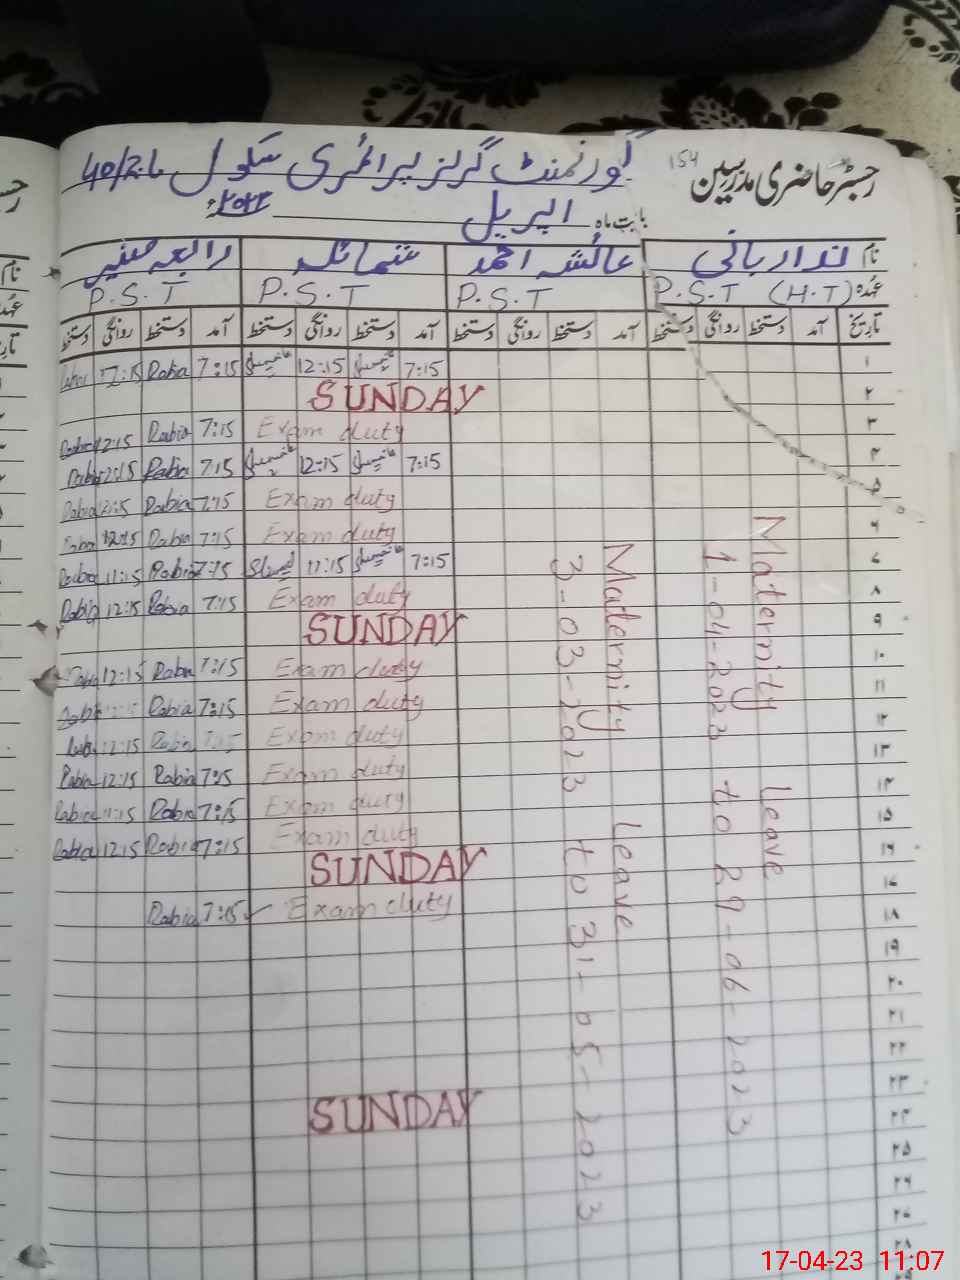 رجسٹر حاضری مدرسین 154 گورنمنٹ گرلز پرائمری سکول 40/2.L
بابت ماہ اپریل ۲۰۲۳ء
نام ندا ربانی عائشہ احمد شمائلہ رابعہ صغیر
عہدہ P.S.T (H.T) P.S.T P.S.T P.S.T
تاریخ آمد دستخط روانگی دستخط آمد دستخط روانگی دستخط آمد دستخط روانگی دستخط آمد دستخط روانگی دستخط
۱ 7:15 12:15 7:15 Rabia
۲ SUNDAY
۳ Exam duty 7:15 Rabia 12:15 Rabia
۴ 7:15 12:15 7:15 Rabia 12:15 Rabia
۵ Exam duty 7:15 Rabia Rabia
۶ Exam duty 7:15 Rabia 12:15
7:15 11:15 7:15 Rabia 11:15 Rabia
۸ Exam duty 7:15 Rabia 12:15 Rabia
۹ SUNDAY
۱۰ Exam duty 7:15 Rabia 12:15
۱۱ Exam duty 7:15 Rabia
۱۲ Exam duty 7:15 Rabia 12:15
۱۳ Exam duty 7:15 Rabia 12:15 Rabia
۱۴ Exam duty 7:15 Rabia 11:15 Rabia
۱۵ Exam duty 7:15 Rabia 12:15 Rabia
SUNDAY
Exam duty 7:15 Rabia
۱۸
۱۹
۲۰
۲۱
۲۲
۲۳ SUNDAY
۲۴
۲۵
Maternity Leave
1-04-2023 to 29-06-2023
Maternity Leave
3-03-2023 to 31-05-2023
17-04-23 11:07